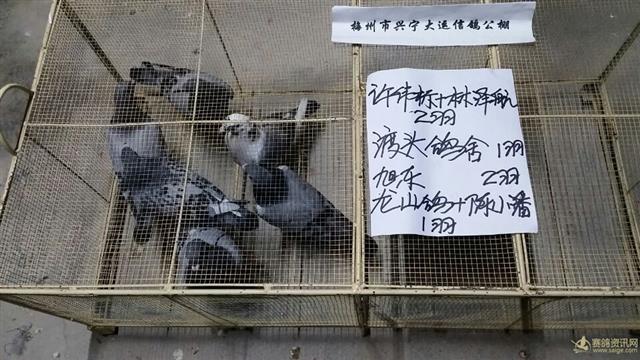 梅州市兴宁大运信鸽公棚
许纬标+林泽航
2羽
渡头鸽舍 1羽
旭东 2羽
龙山鸽+陈小潘
1羽
赛鸽资讯网
www.saige.com